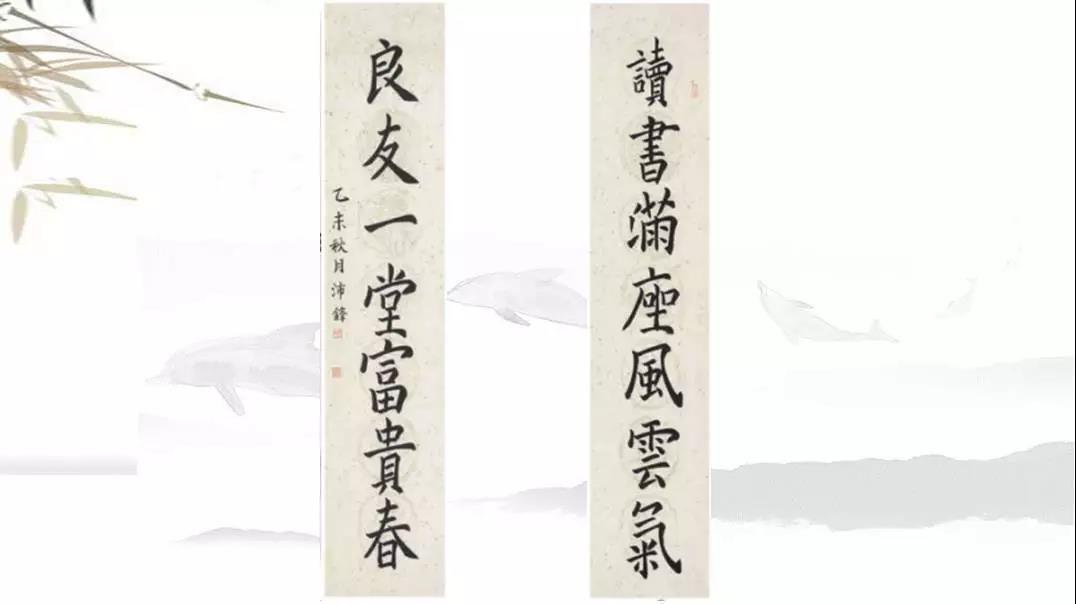 讀書滿座風雲氣
良友一堂富貴春
乙未秋月沛鋒